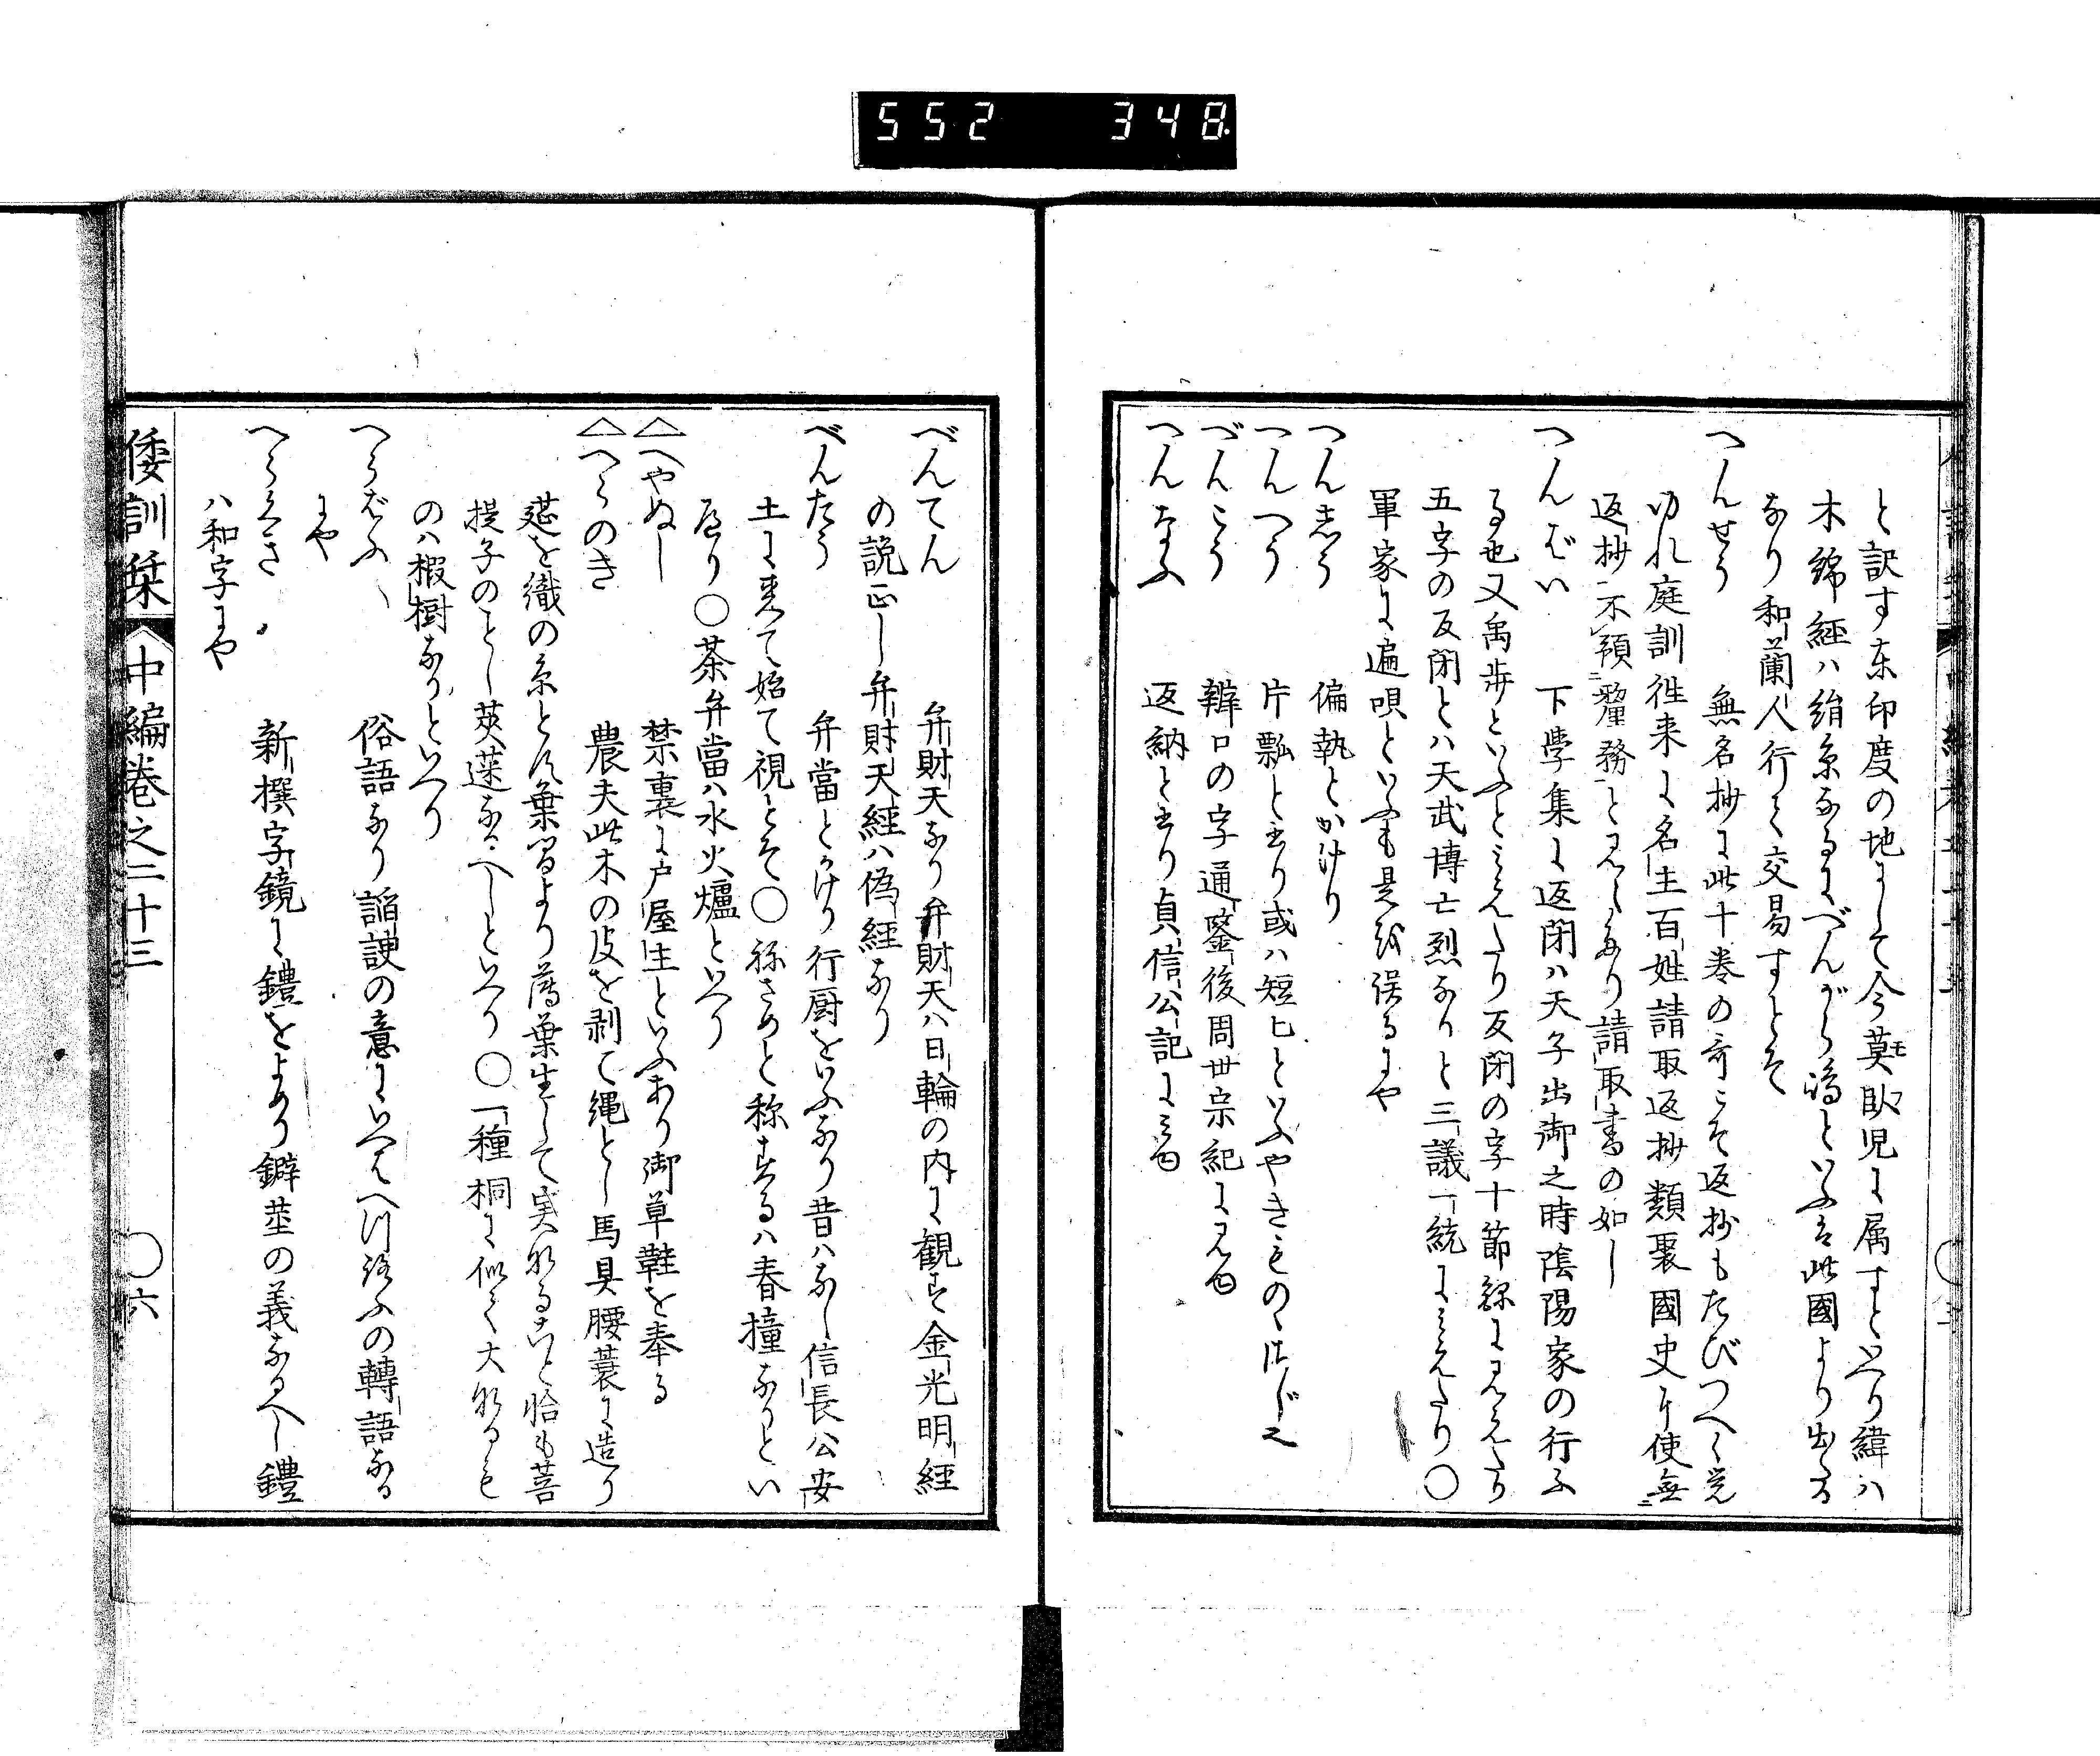 552 348
と訳す东印度の地にして今莫臥児に属すといへり緯ハ
木綿経ハ絹糸なるにべんがら嶋といふは此國より出る
なり和蘭人行て交易すとそ
へんせう 無名抄に此十巻の哥こそ返抄もたびつへく覚
ゆれ庭訓徃来に名主百姓請取返抄類聚國史に使無
返抄不預釐務と見えたり請取書の如し
へんばい 下學集に返閉ハ天子出御之時陰陽家の行ふ
る也又禹歩といふとみえたり反閉の字十節録に見えたり
五字の反閉とハ天武博亡烈なりと三議一統にみえたり〇
軍家に遍唄といふも是を誤るにや
へんしう 偏執とかけり
へんへう 片瓢と書り或ハ短匕といふやきもの
べんこう 辯口の字通鑒後周世宗紀に見ゆ
へんなふ 返納と書り貞信公記にみゆ
べんてん 弁財天なり弁財天ハ日輪の内に観す金光明経
の説正し弁財天経ハ偽経なり
べんたう 弁當とかけり行厨をいふなり昔ハなし信長公安
土に来て始て視とそ〇ねさめと称するハ春撞なりとい
へり〇茶弁當ハ水火爐といへり
△へやぬし 禁裏に戸屋主といふあり御草鞋を奉る
△へらのき 農夫此木の皮を剥て縄とし馬具腰蓑に造り
莚を織の糸とす葉間より薄葉生して実なること恰も菩
提子のとし莢蒾なるへしといへり〇一種桐に似て大なるも
のハ椵樹なりといへり
へらばふ 俗語なり謟諛の意にいへるへつらふの轉語なる
にや
へらくさ 新撰字鏡に鑵をよめり鐴䒾の義なるへし鑵
ハ和字にや
倭訓栞 中編巻之二十三 〇六